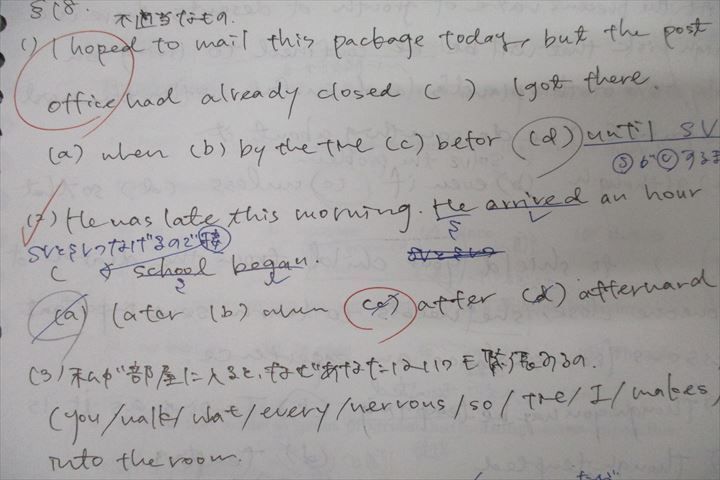 §18. 不適当なもの.
(1) I hoped to mail this package today, but the post
office had already closed ( ) I got there.
(a) when (b) by the tme (c) befor (d) until SV
SVとSVつなげるので接
(2) He was late this morning. He arrived an hour
( school began.
(a) later (b) when (c) after (d) afterward
(3) 私が部屋に入ると、なぜあなたはいつも緊張するの.
(you/walk/what/every/nervous/so/tme/I/makes/
into the room.